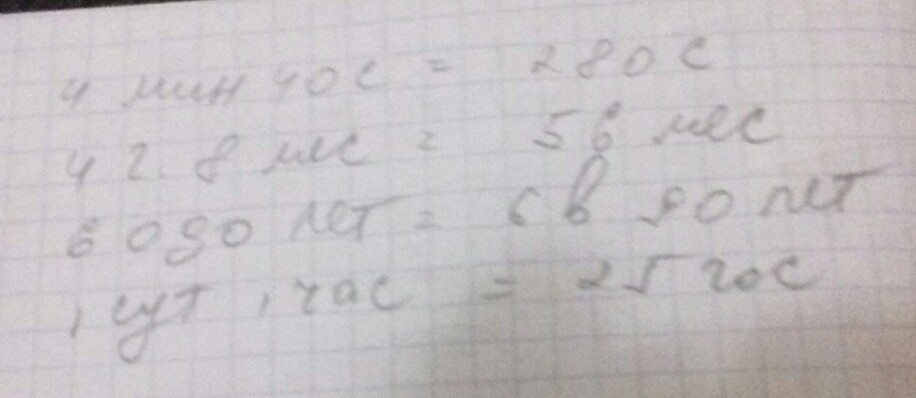 4 мин 40 с = 280 с
4 г. 8 мес = 56 мес
6090 лет = 6 в 90 лет
1 сут 1 час = 25 час